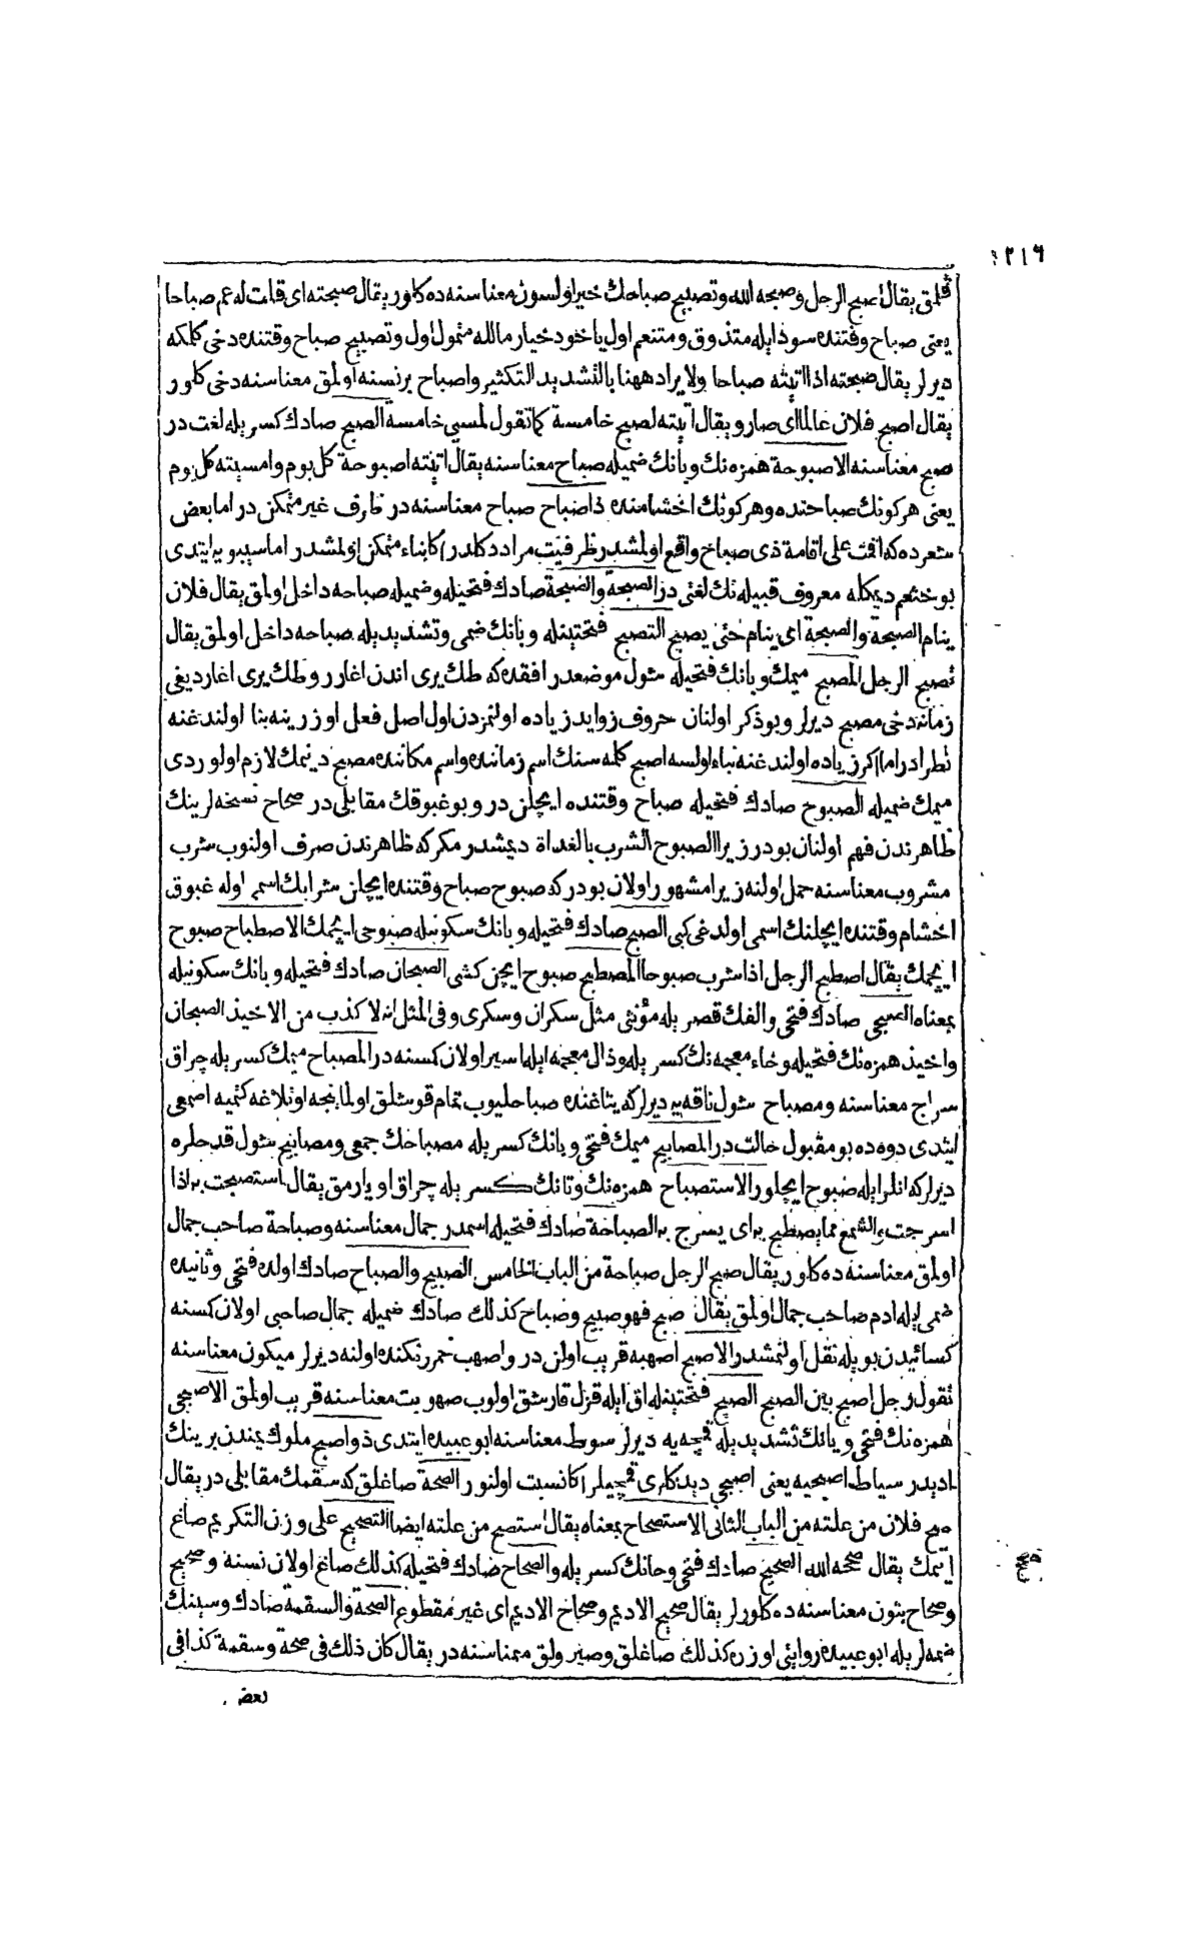 ٢١٦
قلمق يقال اصبح الرجل وصبحه الله وتصبيح صباحك خير اولسون معناسنه ده كلور يقال صبحته اى قلت له عم صباحا
يعنى صباح وقتنده سود ايله متذوق ومتنعم اول ياخود خيار مالله متمول اول وتصبيح صباح وقتنده دخى كلمكه
ديرلر يقال صبحته اذا اتيته صباحا ولا يراد ههنا بالتشديد التكثير واصباح برنسنه اولمق معناسنه دخى كلور
يقال اصبح فلان عالما اى صار ويقال اتيته لصبح خامسة كما تقول لمسى خامسة الصبح صادك كسريله لغت در
صبح معناسنه الاصبوحة همزه نك وبانك ضميله صباح معناسنه يقال اتيته اصبوحة كل يوم وامسيته كل يوم
يعنى هر كونك صباحنده وهر كونك اخشامنده ذا صباح صباح معناسنه در ظرف غير متمكن در اما بعض
شعرده كه اقمت على اقامة ذى صباح واقع اولمشدر ظرفيت مراد دكلدر اكا بناء متمكن اولمشدر اما سيبويه ايتدى
بو خثعم ديمكله معروف قبيله نك لغتى در الصبحة والصبحة صادك فتحيله وضميله صباحه داخل اولمق يقال فلان
ينام الصبحة والصبحة اى ينام حتى يصبح التصبح فتحتينله وبانك ضمى وتشديديله صباحه داخل اولمق يقال
تصبح الرجل المصبح ميمك وبانك فتحيله شول موضعدر افقده كه طك يرى اندن اغارر وطك يرى اغارديغى
زمانه دخى مصبح ديرلر وبو ذكر اولنان حروف زوايد زياده اولنمزدن اول اصل فعل اوزرينه بنا اولندغنه
نظرا در اما اكر زياده اولندغنه بناء اولسه اصبح كلمه سنك اسم زماننده واسم مكاننده مصبح دينمك لازم اولوردى
ميمك ضميله الصبوح صادك فتحيله صباح وقتنده ايچلن در وبو غبوقك مقابلى در صحاح نسخه لرينك
ظاهرندن فهم اولنان بودر زيرا الصبوح الشرب بالغداة ديمشدر مكر كه ظاهرندن صرف اولنوب شرب
مشروب معناسنه حمل اولنه زيرا مشهور اولان بودر كه صبوح صباح وقتنده ايچلن شرابك اسمى اوله غبوق
اخشام وقتنده ايچلنك اسمى اولدغى كبى الصبح صادك فتحيله وبانك سكونيله صبوحى ايچمك الاصطباح صبوح
ايچمك يقال اصطبح الرجل اذا شرب صبوحا المصطبح صبوح ايچن كشى الصبحان صادك فتحيله وبانك سكونيله
بمعناه الصبحى صادك فتحى والفك قصريله مؤنثى مثل سكران وسكرى وفى المثل انه لاكذب من الاخيذ الصبحان
واخيذ همزه نك فتحيله وخاء معجمه نك كسريله وذال معجمه ايله اسير اولان كمسنه در المصباح ميمك كسريله چراق
سراج معناسنه ومصباح شول ناقه يه ديرلر كه يتاغنده صباحليوب تمام قوشلق اولماينجه اوتلاغه كتميه اصمعى
ايتدى دوه ده بو مقبول حالت در المصابيح ميمك فتحى وبانك كسريله مصباحك جمعى ومصابيح شول قدحلره
ديرلر كه انلر ايله صبوح ايچلور الاستصباح همزه نك وتانك كسريله چراق اويارمق يقال استصبحت به اذا
اسرجت والشمع مما يصطبح به اى يسرج به الصباحة صادك فتحيله اسمدر جمال معناسنه وصباحة صاحب جمال
اولمق معناسنه ده كلور يقال صبح الرجل صباحة من الباب الخامس الصبيح والصباح صادك اولده فتحى وثانيده
ضمى ايله ادم صاحب جمال اولمق يقال صبح فهو صبيح وصباح كذلك صادك ضميله جمال صاحبى اولان كمسنه
كسائيدن بويله نقل اولنمشدر الاصبح اصهبه قريب اولن در واصهب خمر رنكنده اولنه ديرلر ميكون معناسنه
تقول رجل اصبح بين الصبح الصبح فتحتينله اق ايله قزل قارشق اولوب صهوبت معناسنه قريب اولمق الاصبحى
همزه نك فتحى ويانك تشديديله قمچه يه ديرلر سوط معناسنه ابو عبيده ايتدى ذو اصبح ملوك يمندن برينك
اديدر سياط اصبحيه يعنى اصبحى ديدكلرى قمچيلر اكا نسبت اولنور الصحة صاغلق كه سقمك مقابلى در يقال
صح فلان من علته من الباب الثانى الاستصحاح بمعناه يقال استصح من علته ايضا التصحيح على وزن التكريم صاغ
ايتمك يقال صححه الله الصحيح صادك فتحى وحانك كسريله والصحاح صادك فتحيله كذلك صاغ اولان نسنه وصحيح
وصحاح بتون معناسنه ده كلورلر يقال صحيح الاديم وصحاح الاديم اى غير مقطوع الصحة والسقمة صادك وسينك
ضمه لريله ابو عبيده روايتى اوزره كذلك صاغلق وصيرولق معناسنه در يقال كان ذلك فى صحة وسقمة كذا فى
بعض
صح